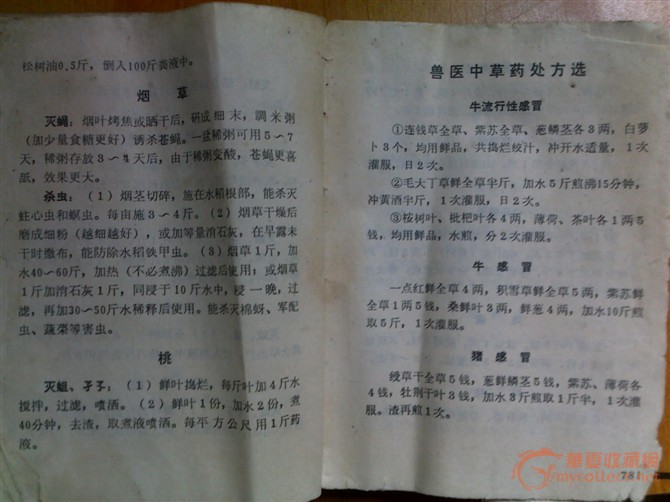 松树油0.5斤，倒入100斤粪液中。
烟草
灭蝇：烟叶烤焦或晒干后，研成细末，调米粥
（加少量食糖更好）诱杀苍蝇。一盆稀粥可用5～7
天，稀粥存放3～4天后，由于稀粥变酸，苍蝇更喜
舐，效果更大。
杀虫：（1）烟茎切碎，施在水稻根部，能杀灭
蛀心虫和螟虫。每亩施3～4斤。（2）烟草干燥后
磨成细粉（越细越好），或加等量消石灰，在早露未
干时撒布，能防除水稻铁甲虫。（3）烟草1斤，加
水40～60斤，加热（不必煮沸）过滤后使用；或烟草
1斤加消石灰1斤，同浸于10斤水中，浸一晚，过
滤，再加30～50斤水稀释后使用。能杀灭棉蚜、军配
虫、蔬菜等害虫。
桃
灭蛆、孑孓：（1）鲜叶捣烂，每斤叶加4斤水
搅拌，过滤，喷洒。（2）鲜叶1份，加水2份，煮
40分钟，去渣，取煮液喷洒。每平方公尺用1斤药
液。
兽医中草药处方选
牛流行性感冒
①连钱草全草、紫苏全草、葱鳞茎各3两，白萝
卜3个，均用鲜品，共捣烂绞汁，冲开水适量，1次
灌服，日2次。
②毛大丁草鲜全草半斤，加水5斤煎沸15分钟，
冲黄酒半斤，1次灌服，日2次。
③桉树叶、枇杷叶各4两，薄荷、茶叶各1两5
钱，均用鲜品，水煎，分2次灌服。
牛感冒
一点红鲜全草4两，积雪草鲜全草5两，紫苏鲜
全草1两5钱，桑鲜叶3两，鲜葱4两，加水10斤煎
取5斤，1次灌服。
猪感冒
绶草干全草5钱，葱鲜鳞茎5钱，紫苏、薄荷各
4钱，牡荆干叶3钱，加水3斤煎取1斤半，1次灌
服。渣再煎1次。
781
华夏收藏网
mycollect.net